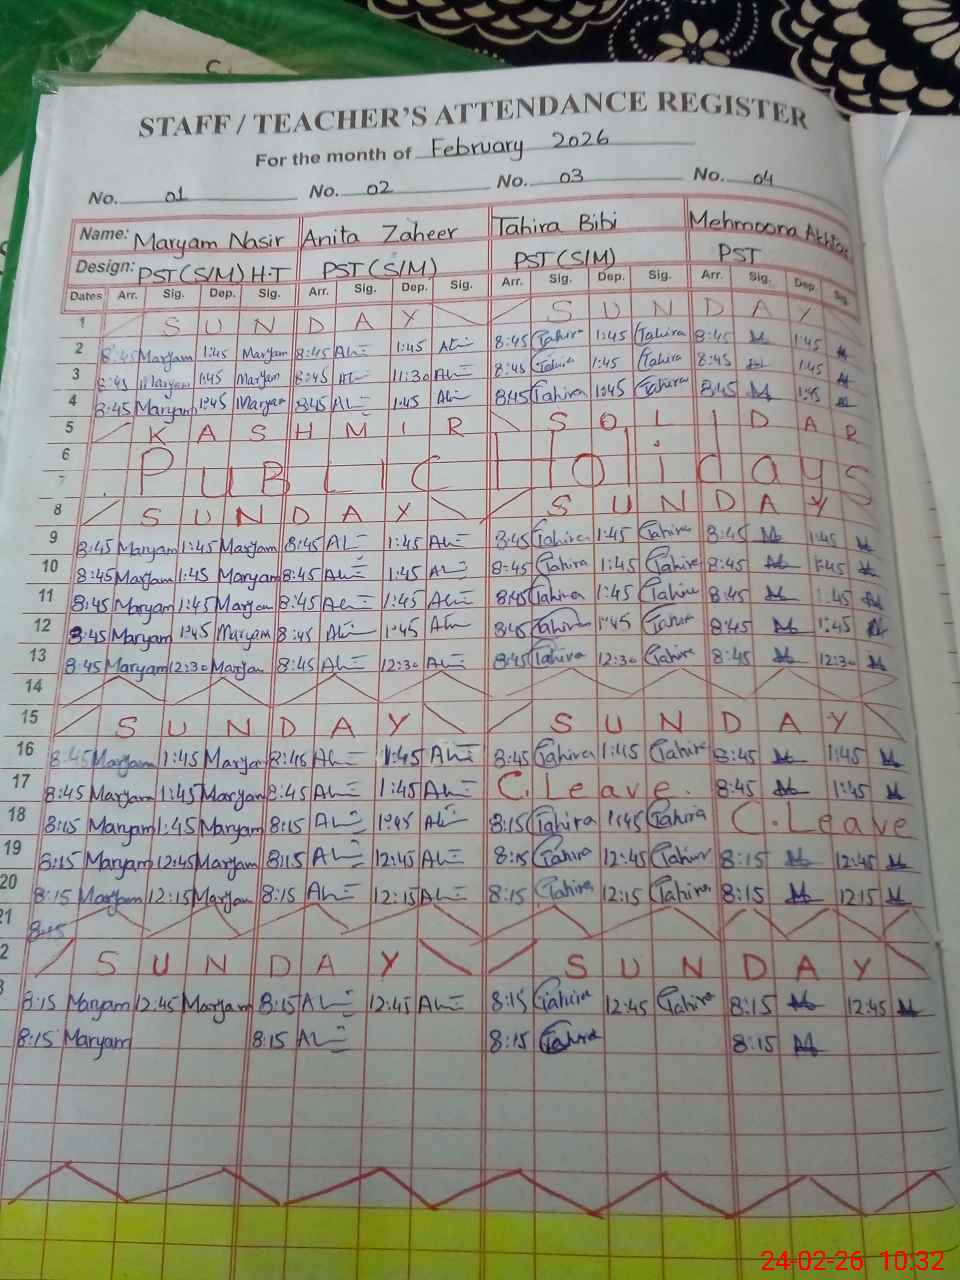 STAFF / TEACHER'S ATTENDANCE REGISTER
For the month of February 2026
No. 01 No. 02 No. 03 No. 04
Name: Maryam Nasir Anita Zaheer Tahira Bibi Mehmoona Akhtar
Design: PST(S/M) H.T PST(S/M) PST(S/M) PST
Dates Arr. Sig. Dep. Sig. Arr. Sig. Dep. Sig. Arr. Sig. Dep. Sig. Arr. Sig. Dep. Sig.
1 SUNDAY SUNDAY
2 8:45 Maryam 1:45 Maryam 8:45 1:45 8:45 Tahira 1:45 Tahira 8:45 1:45
3 8:45 Maryam 1:45 Maryam 8:45 11:30 8:45 Tahira 1:45 Tahira 8:45 1:45
4 8:45 Maryam 1:45 Maryam 8:45 1:45 8:45 Tahira 1:45 Tahira 8:45 1:45
5 KASHMIR SOLIDAR
6
7 PUBLIC Holidays
8 SUNDAY SUNDAY
9 8:45 Maryam 1:45 Maryam 8:45 1:45 8:45 Tahira 1:45 Tahira 8:45 1:45
10 8:45 Maryam 1:45 Maryam 8:45 1:45 8:45 Tahira 1:45 Tahira 8:45 1:45
11 8:45 Maryam 1:45 Maryam 8:45 1:45 8:45 Tahira 1:45 Tahira 8:45 1:45
12 8:45 Maryam 1:45 Maryam 8:45 1:45 8:45 Tahira 1:45 Tahira 8:45 1:45
13 8:45 Maryam 12:30 Maryam 8:45 12:30 8:45 Tahira 12:30 Tahira 8:45 12:30
14
15 SUNDAY SUNDAY
16 8:45 Maryam 1:45 Maryam 8:45 1:45 8:45 Tahira 1:45 Tahira 8:45 1:45
17 8:45 Maryam 1:45 Maryam 8:45 1:45 C.Leave. 8:45 1:45
18 8:15 Maryam 1:45 Maryam 8:15 1:45 8:15 Tahira 1:45 Tahira C.Leave
19 8:15 Maryam 12:45 Maryam 8:15 12:45 8:15 Tahira 12:45 Tahira 8:15 12:45
20 8:15 Maryam 12:15 Maryam 8:15 12:15 8:15 Tahira 12:15 Tahira 8:15 12:15
21 8:15
2 SUNDAY SUNDAY
3 8:15 Maryam 12:45 Maryam 8:15 12:45 8:15 Tahira 12:45 Tahira 8:15 12:45
8:15 Maryam 8:15 8:15 Tahira 8:15
24-02-26 10:32